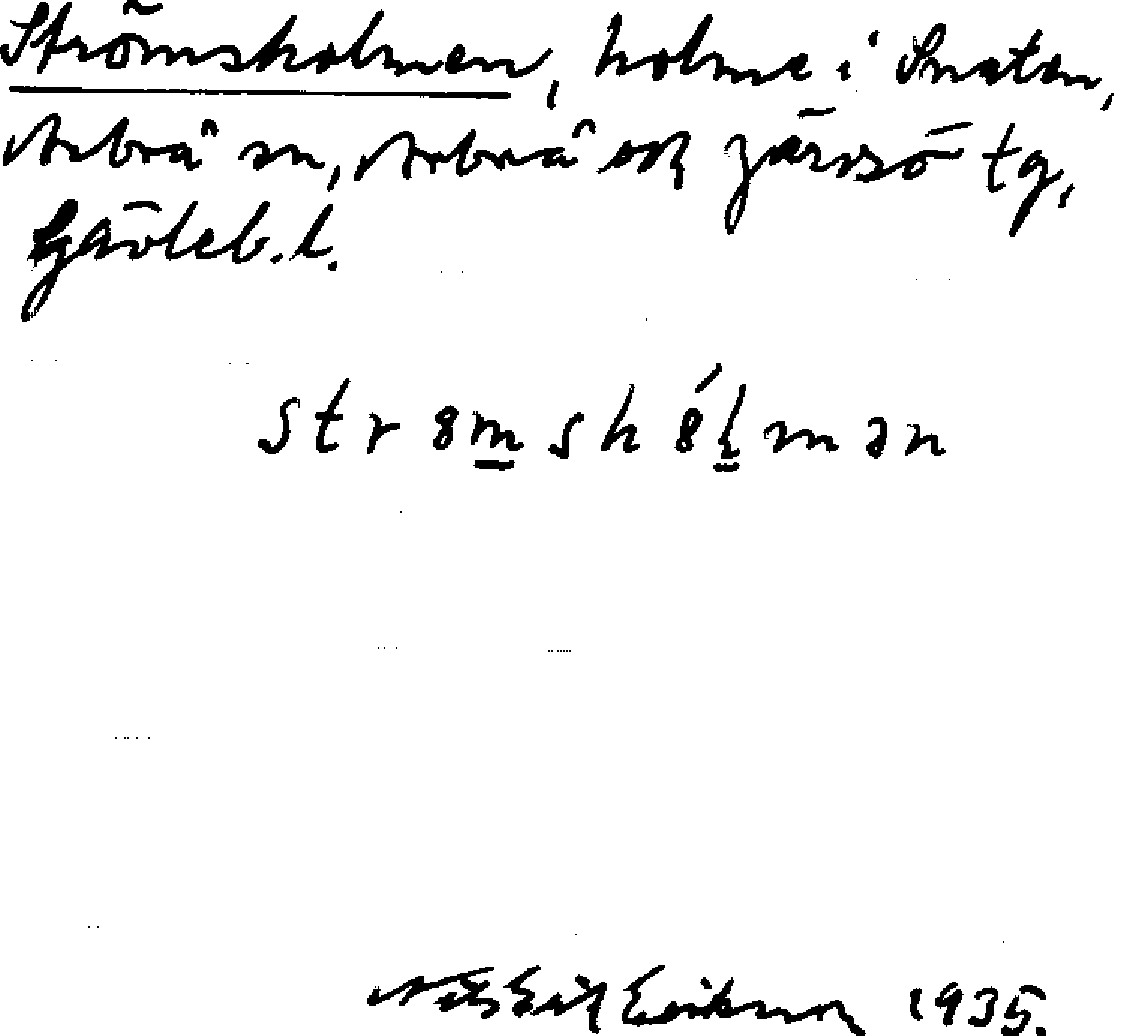 Strömsholmen, holme i Snaten,
Arbrå sn, Arbrå och Järvsö tg,
Gävleb. l.
str8mshó̤l̤mən
Nils Erik Eriksson 1935.